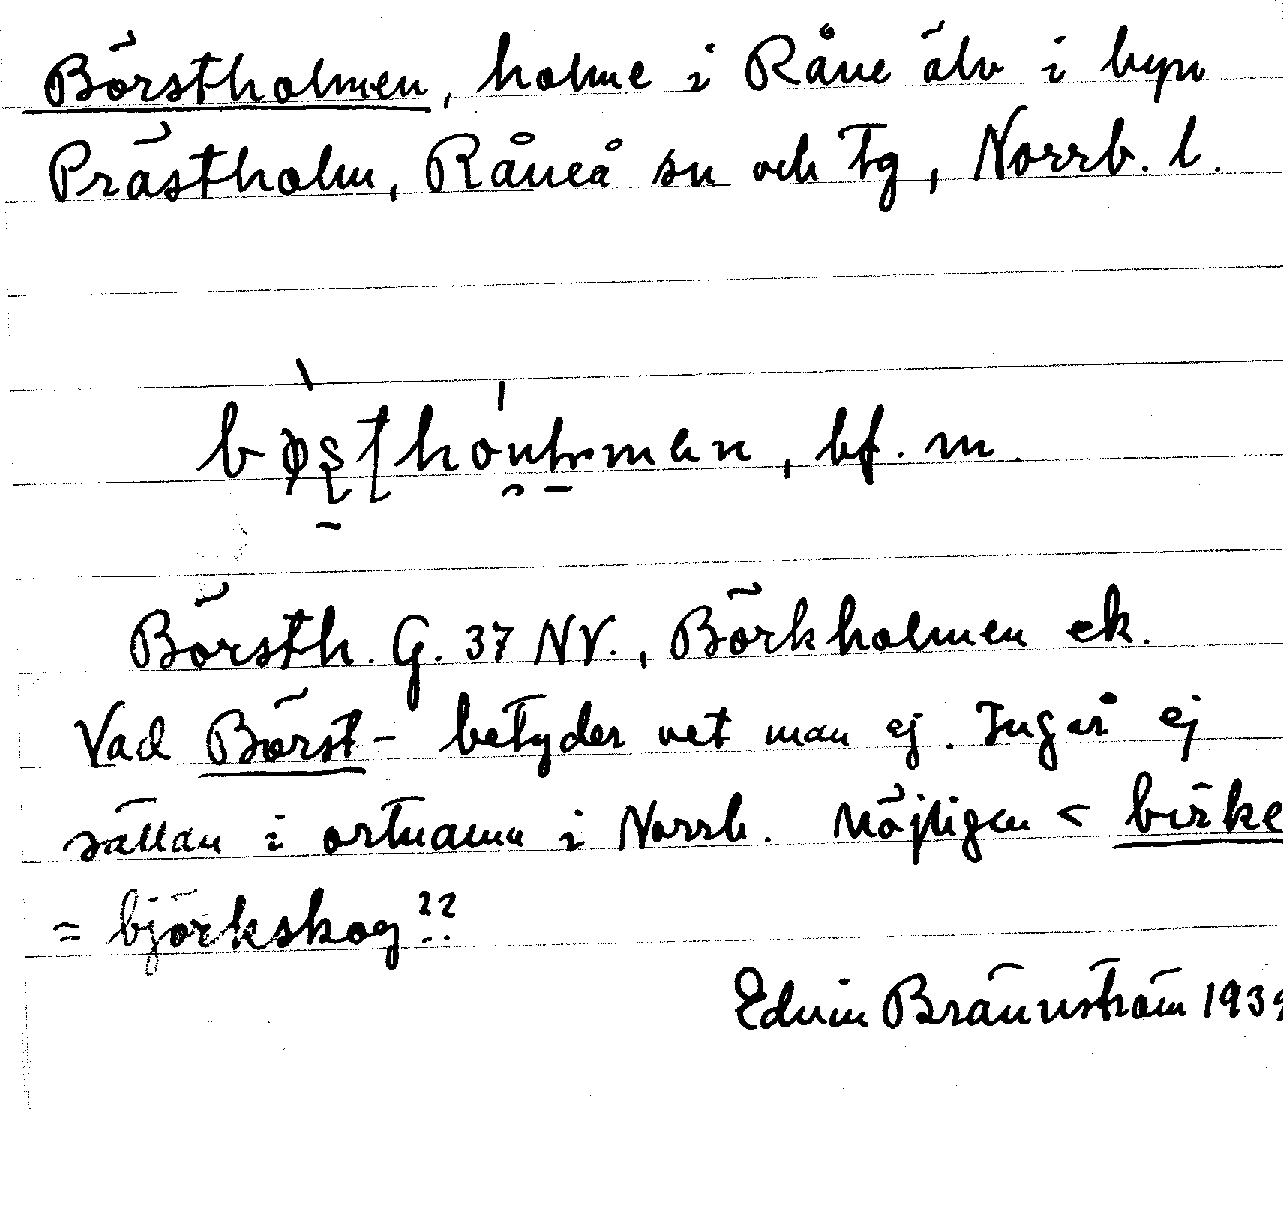 Börstholmen, holme i Råne älv i byn
Prästholm, Råneå sn och tg, Norrb. l.
bf. m.
Börsth. G. 37 NV., Börkholmen ek.
Vad Börst- betyder vet man ej. Ingår ej
sällan i ortnamn i Norrb. Möjligen < birke
= björkskog??
Edvin Brännström 193